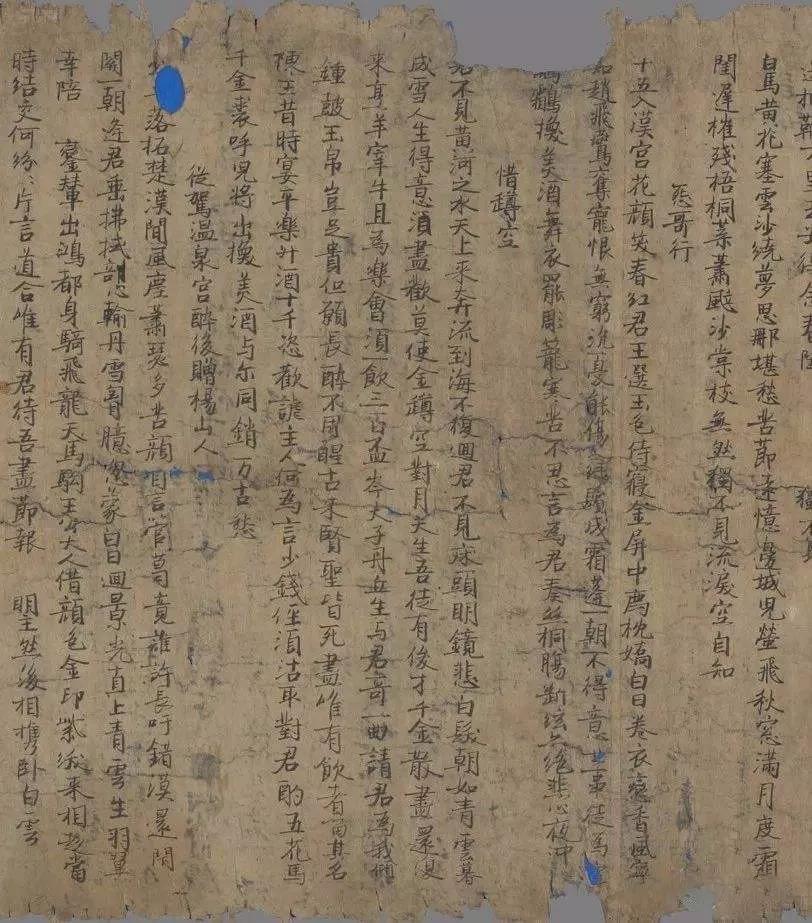 白馬黃花塞雲沙繞夢思那堪愁苦節遠憶邊城兒螢飛秋窓滿月度霜
閨遲摧殘梧桐葉蕭颯沙棠枝無然獨不見流淚空自知
怨哥行
十五入漢宮花顏笑春紅君王選玉色侍寢金屏中薦枕嬌白日卷衣戀香風寧
知趙飛鷰奪寵恨無窮沉憂能傷人綠鬢成霜蓬一朝不得意世事徒為空
鷫鸘換美酒舞衣罷彫籠寒苦不忍言為君奏絲桐腸斷弦亦絕悲心夜忡
惜罇空
君不見黃河之水天上來奔流到海不復迴君不見床頭明鏡悲白髮朝如青雲暮
成雪人生得意須盡歡莫使金罇空對月天生吾徒有俊才千金散盡還復
來烹羊宰牛且為樂會須一飲三百盃岑夫子丹丘生与君哥一曲請君為我傾
鍾皷玉帛豈足貴但願長醉不用醒古來賢聖皆死盡唯有飲者留其名
陳王昔時宴平樂斗酒十千恣歡謔主人何為言少錢徑須沽取對君酌五花馬
千金裘呼兒將出換美酒与尔同銷万古愁
從駕溫泉宮醉後贈楊山人
落拓楚漢間風塵蕭瑟多苦顏自言管葛竟誰許長吁錯漠還閉
關一朝逢君垂拂拭剖心輸丹雪胷臆忽蒙白日迴景光直上青雲生羽翼
幸陪 鑾輦出鴻都身騎飛龍天馬駒王公大人借顏色金印紫綬來相趍當
時結交何紛々片言道合唯有君待吾盡節報 明主然後相攜卧白雲